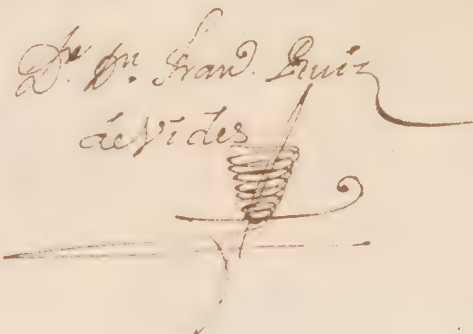 Dr. Dn. Fran.d Ruiz
de Vides